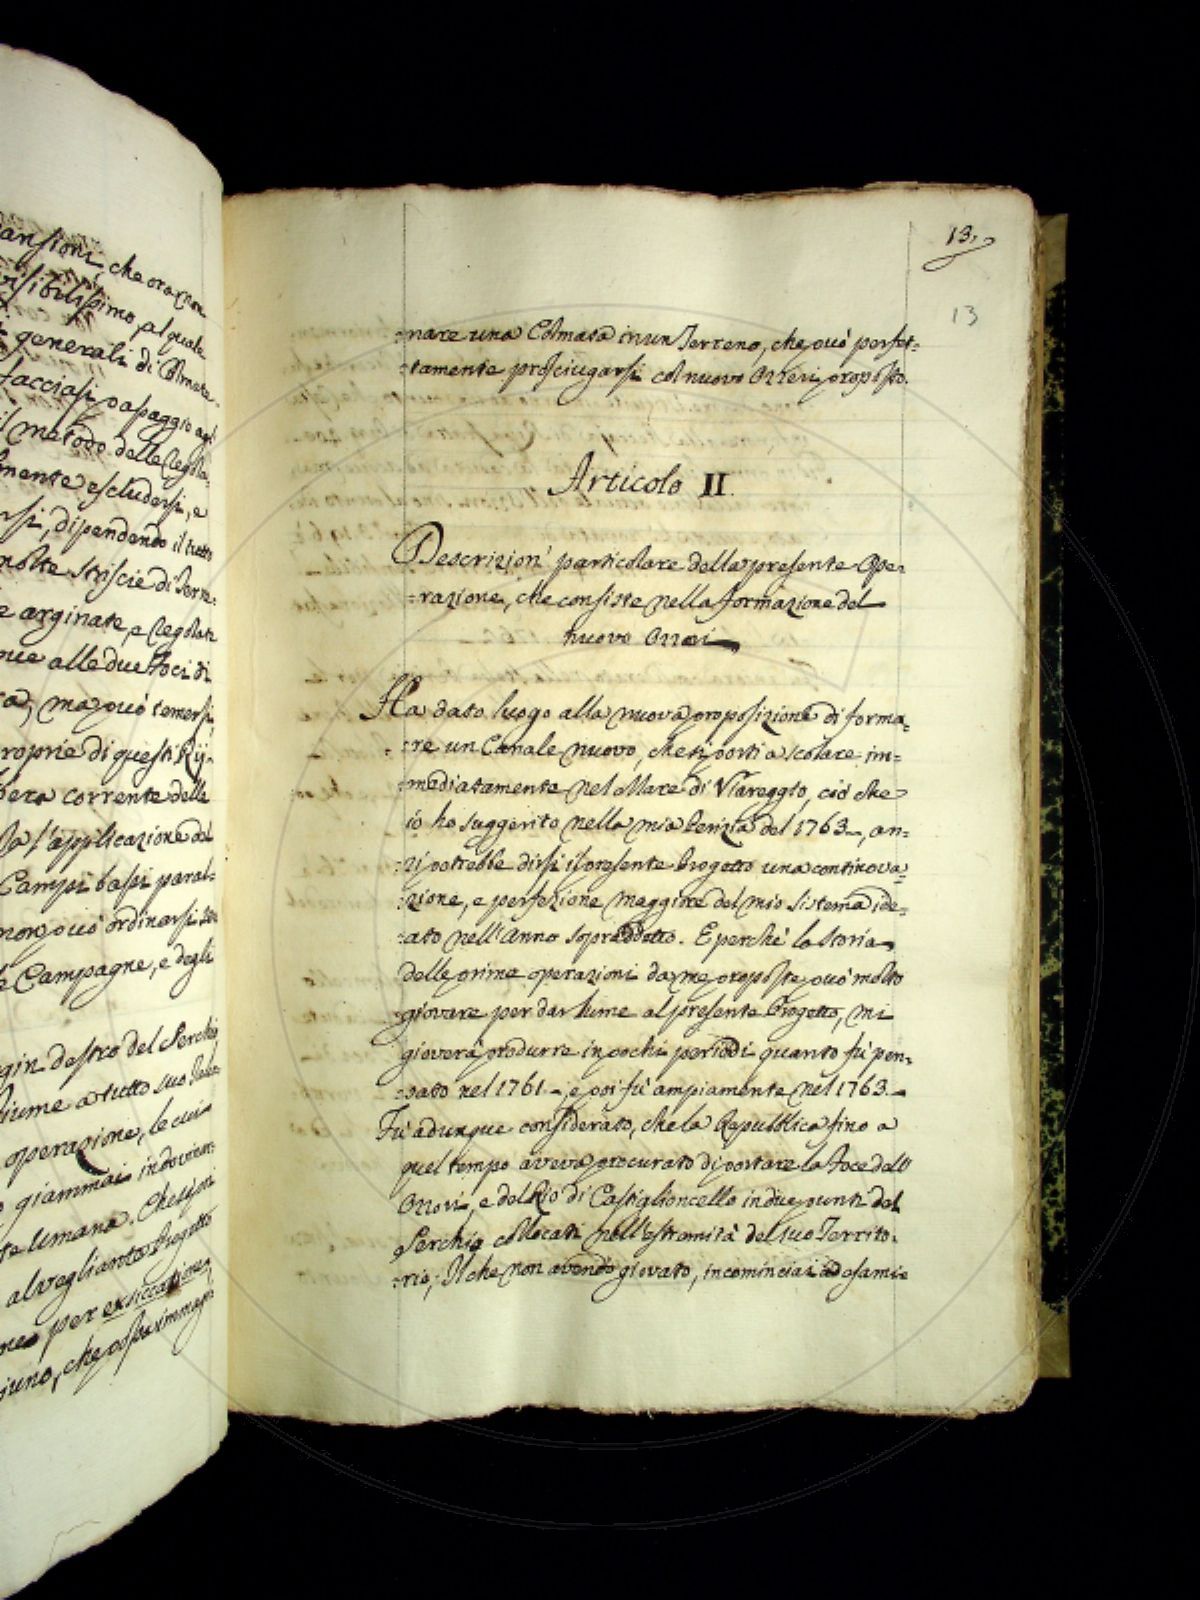 ansioni, che ora non
visibilissimo, al quale
generali di Colmate
facciasi o apaggio
il metodo delle Regola-
mente escludersi, e
rsi, dipendendo il tutto
molte striscie di Terre-
e arginate, e regolate
que alle due Foci di
ma può temersi,
proprie di questi Rij-
bera corrente delle
la l'applicazione del
Campi bassi paral-
non può ordinarsi
le Campagne, e degli
rgin destro del Serchio
Fiume a tutto suo
operazione, le cui
giammai indovinar-
te umana. Che si poi
al vegliante Progetto
per exsiccationem
che possa immagi-
13.
13
:nare una Colmata in un Terreno, che può perfet-
:tamente prosciugarsi col nuovo Ozzeri proposto.
Articolo II.
Descrizion' particolare della presente Ope-
:razione, che consiste nella formazione del
nuovo Ozzeri
Ha dato luogo alla nuova proposizione di forma-
:re un Canale nuovo, che si porti a scolare im-
:mediatamente nel Mare di Viareggio, ciò che
io ho suggerito nella mia Perizia del 1763, an-
:zi potrebbe dirsi il presente Progetto una continova-
:zione, e perfezione maggiore del mio Sistema ide-
:ato nell'Anno sopraddetto. E perchè la Storia
delle prime operazioni da me proposte può molto
giovare per dar lume al presente Progetto, mi
gioverà produrre in pochi periodi quanto fù pen-
:sato nel 1761, e poi fù ampiamente nel 1763.
Fù adunque considerato, che la Repubblica fino a
quel tempo aveva procurato di portare la Foce dell'
Ozzori, e del Rio di Castiglioncello in due punti del
Serchio collocati nell'estremità del suo Territo-
:rio; Il che non avendo giovato, incominciai ad esami-